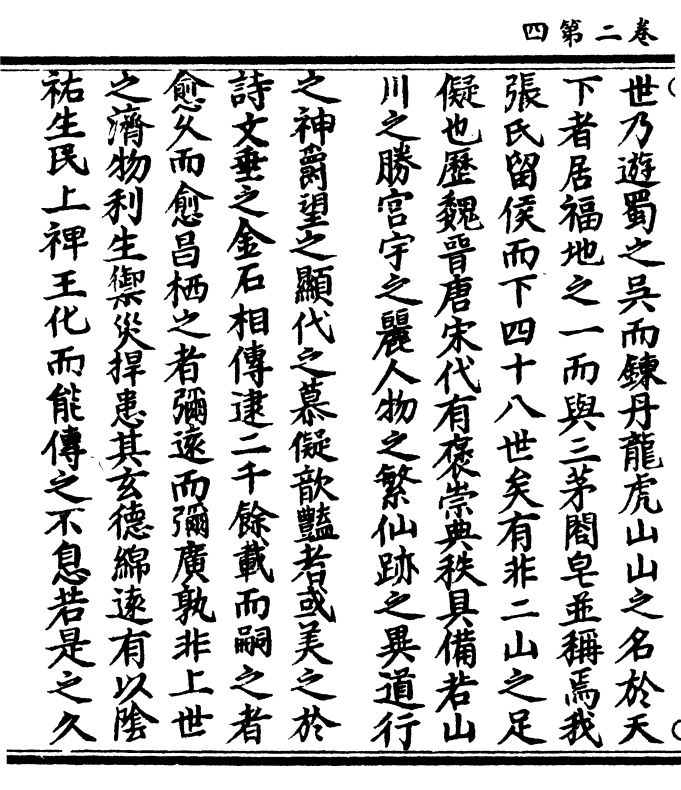 卷二第四
世乃遊蜀之吳而鍊丹龍虎山山之名於天
下者居福地之一而與三茅閤皂並稱焉我
張氏留侯而下四十八世矣有非二山之足
儗也歷魏晉唐宋代有褒崇典秩具備若山
川之勝宮宇之麗人物之繁仙跡之異道行
之神爵望之顯代之慕儗歆豔者或美之於
詩文垂之金石相傳逮二千餘載而嗣之者
愈久而愈昌栖之者彌遠而彌廣孰非上世
之濟物利生禦災捍患其玄德綿遠有以陰
祐生民上裨王化而能傳之不息若是之久